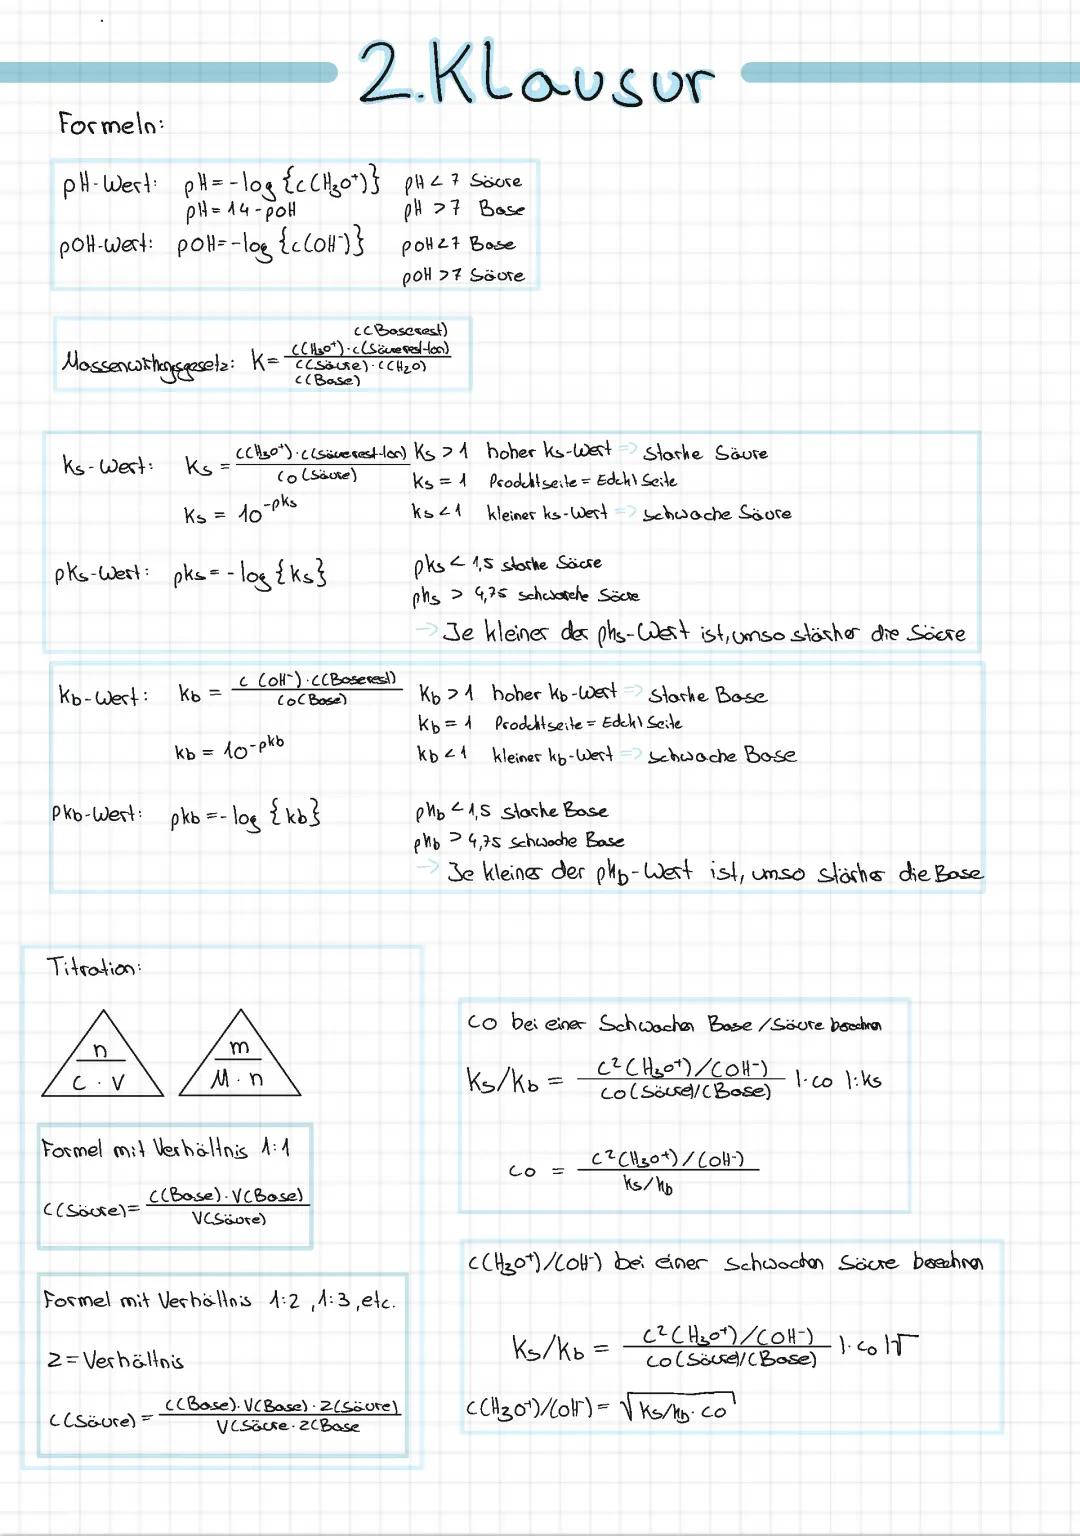 2.Klausur
Formeln:
pH-Wert: pH = -log {c(H₃O⁺)} pH < 7 Säure
pH = 14 - pOH pH > 7 Base
pOH-Wert: pOH = -log {c(OH⁻)} pOH < 7 Base
pOH > 7 Säure
c(Baserest)
c(H₃O⁺)·c(Säurerest-Ion)
Massenwirkungsgesetz: K =
c(Säure)·c(H₂O)
c(Base)
c(H₃O⁺)·c(Säurerest-Ion) Ks > 1 hoher Ks-Wert => Starke Säure
Ks-Wert: Ks =
c₀(Säure) Ks = 1 Produktseite = Edukt Seite
Ks = 10^-pKs Ks < 1 kleiner Ks-Wert => schwache Säure
pKs < 1,5 starke Säure
pKs-Wert: pKs = -log {Ks}
pKs > 4,75 schwache Säure
→ Je kleiner der pKs-Wert ist, umso stärker die Säure
c (OH⁻)·c(Baserest)
Kb-Wert: Kb = Kb > 1 hoher Kb-Wert => Starke Base
c₀(Base)
Kb = 1 Produktseite = Edukt Seite
Kb = 10^-pKb Kb < 1 kleiner Kb-Wert => schwache Base
pKb-Wert: pKb = -log {Kb} pKb < 1,5 starke Base
pKb > 4,75 schwache Base
→ Je kleiner der pKb-Wert ist, umso stärker die Base
Titration:
n
c · V
m
M · n
Formel mit Verhältnis 1:1
c(Base)·V(Base)
c(Säure) =
V(Säure)
Formel mit Verhältnis 1:2, 1:3, etc.
Z = Verhältnis
c(Base)·V(Base)·Z(Säure)
c(Säure) =
V(Säure·Z(Base
c₀ bei einer Schwachen Base/Säure berechnen
c²(H₃O⁺)/(OH⁻)
Ks/Kb = |·c₀ |:Ks
c₀(Säure)/(Base)
c²(H₃O⁺)/(OH⁻)
c₀ =
Ks/Kb
c(H₃O⁺)/(OH⁻) bei einer Schwachen Säure berechnen
c²(H₃O⁺)/(OH⁻)
Ks/Kb = |·c₀ |√
c₀(Säure)/(Base)
c(H₃O⁺)/(OH⁻) = √Ks/Kb·c₀